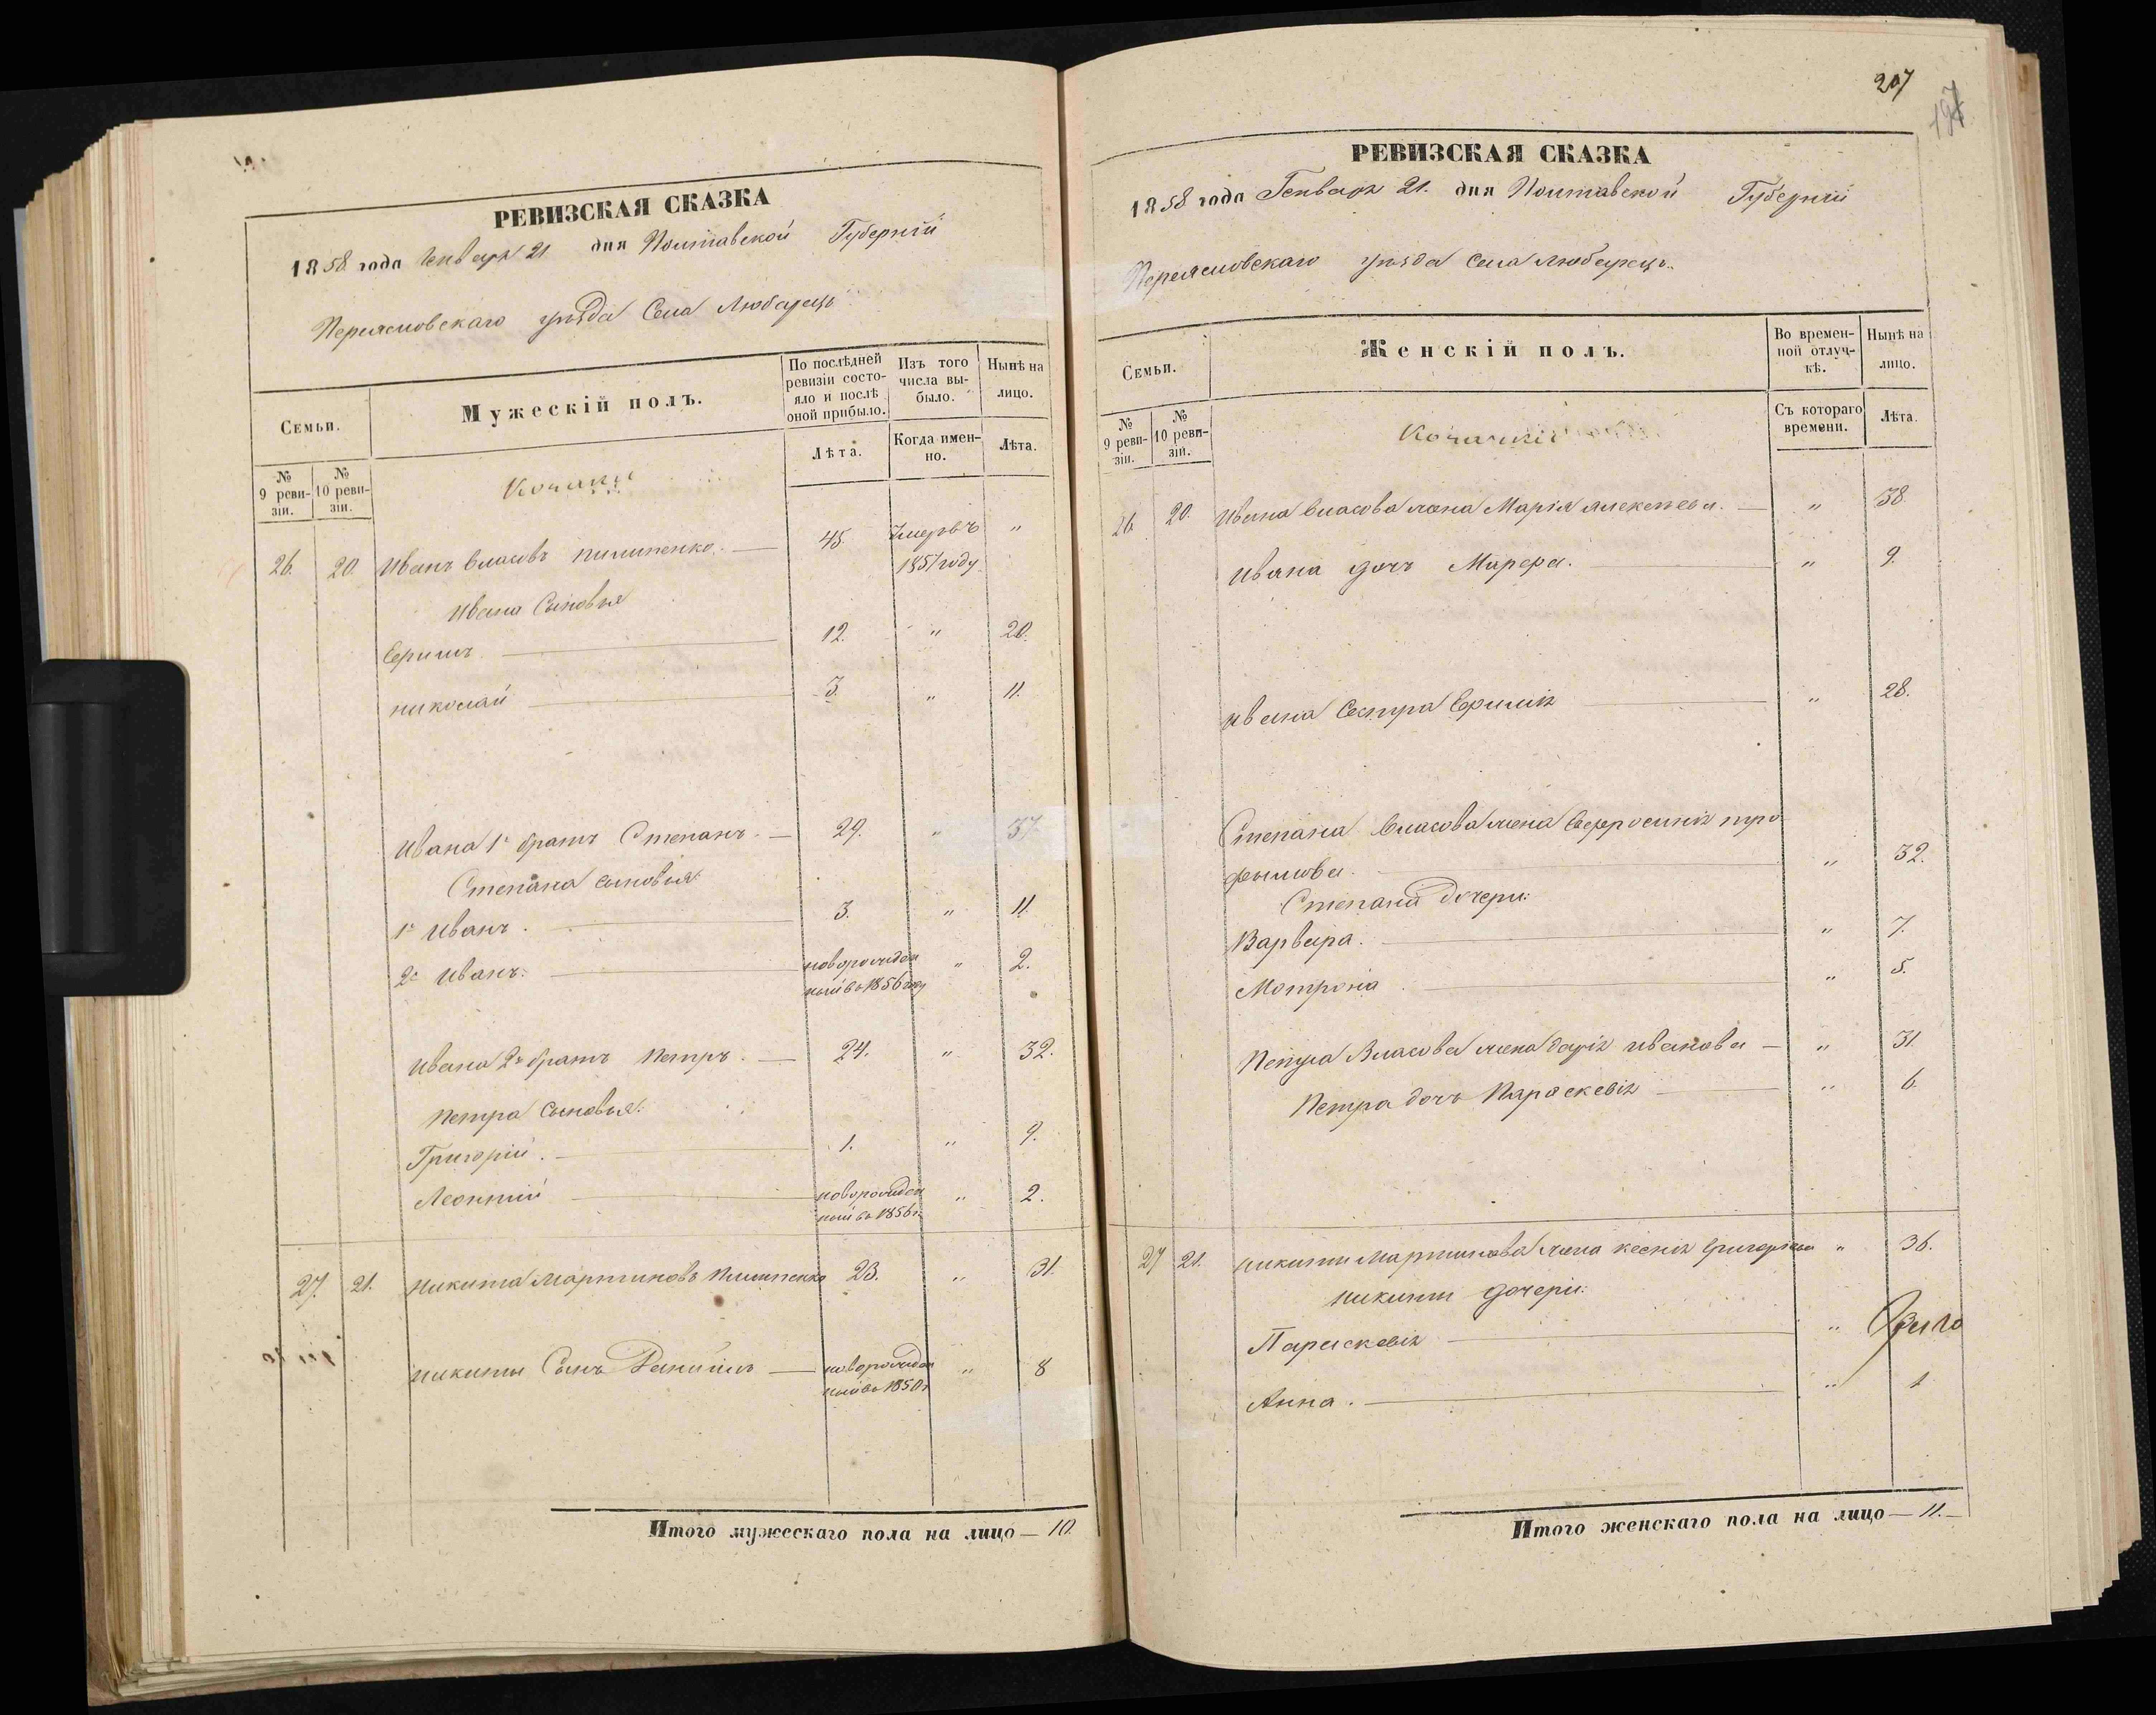 РЕВИЗСКАЯ СКАЗКА
1858 года Генваря 21 дня Полтавской Губерніи
Переясловскаго уѣзда Села Любарецъ
Семьи.
Мужескій полъ.
По послѣдней ревизіи состояло и послѣ оной прибыло.
Изъ того числа выбыло.
Нынѣ на лицо.
№ 9 ревизіи.
№ 10 ревизіи.
Лѣта.
Когда именно.
Лѣта.
26. 20. Иванъ Власовъ Пилипенко. — 45. Умеръ въ "
1857 году
Ивана Сыновья
Ефимъ 12. " 20.
Николай 3. " 11.
Ивана 1й братъ Степанъ. — 29. " 37
Степана сыновья
1й Иванъ. 3. " 11.
2й Иванъ. новорожден " 2.
ный въ 1856 году
Ивана 2й братъ Петръ. — 24. " 32.
Петра Сыновья.
Григорій. 1. " 9.
Леонтій новорожден " 2.
ный въ 1856 г.
27. 21. Никита Мартиновъ Пилипенко 23. " 31.
Никиты Сынъ Даніилъ — новорожден " 8
ный въ 1850 г
Итого мужескаго пола на лицо — 10.
207
197
РЕВИЗСКАЯ СКАЗКА
1858 года Генваря 21. дня Полтавской Губерніи
Переясловскаго уѣзда Села Любарецъ.
Семьи.
Женскій полъ.
Во временной отлучкѣ.
Нынѣ на лицо.
№ 9 ревизіи.
№ 10 ревизіи.
Съ котораго времени.
Лѣта.
26. 20. Ивана Власова жена Марія Алексѣева. — " 38.
Ивана дочь Марфа. " 9.
Ивана Сестра Ефимія " 28.
Степана Власова жена Евфросинія Тро
фымова. " 32.
Степана Дочери:
Варвара. " 7.
Мотрона. " 5.
Петра Власова жена Дарія Иванова — " 31
Петра дочь Параскевія " 6.
27 21. Никиты Мартинова жена Ксенія Григорьева " 36.
Никиты дочери:
Параскевія "
Анна. " 1
Итого женскаго пола на лицо — 11. —